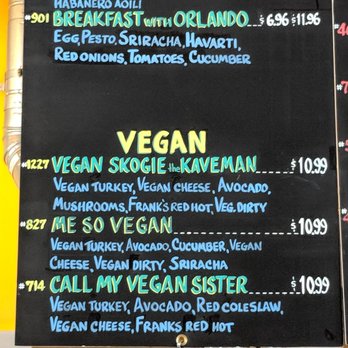 HABANERO AOILI
#901 BREAKFAST WITH ORLANDO $6.96 $11.96
EGG, PESTO, SRIRACHA, HAVARTI,
RED ONIONS, TOMATOES, CUCUMBER
VEGAN
#1227 VEGAN SKOGIE the KAVEMAN $10.99
VEGAN TURKEY, VEGAN CHEESE, AVOCADO,
MUSHROOMS, FRANK'S RED HOT, VEG. DIRTY
#827 ME SO VEGAN $10.99
VEGAN TURKEY, AVOCADO, CUCUMBER, VEGAN
CHEESE, VEGAN DIRTY, SRIRACHA
#714 CALL MY VEGAN SISTER $10.99
VEGAN TURKEY, AVOCADO, RED COLESLAW,
VEGAN CHEESE, FRANKS RED HOT